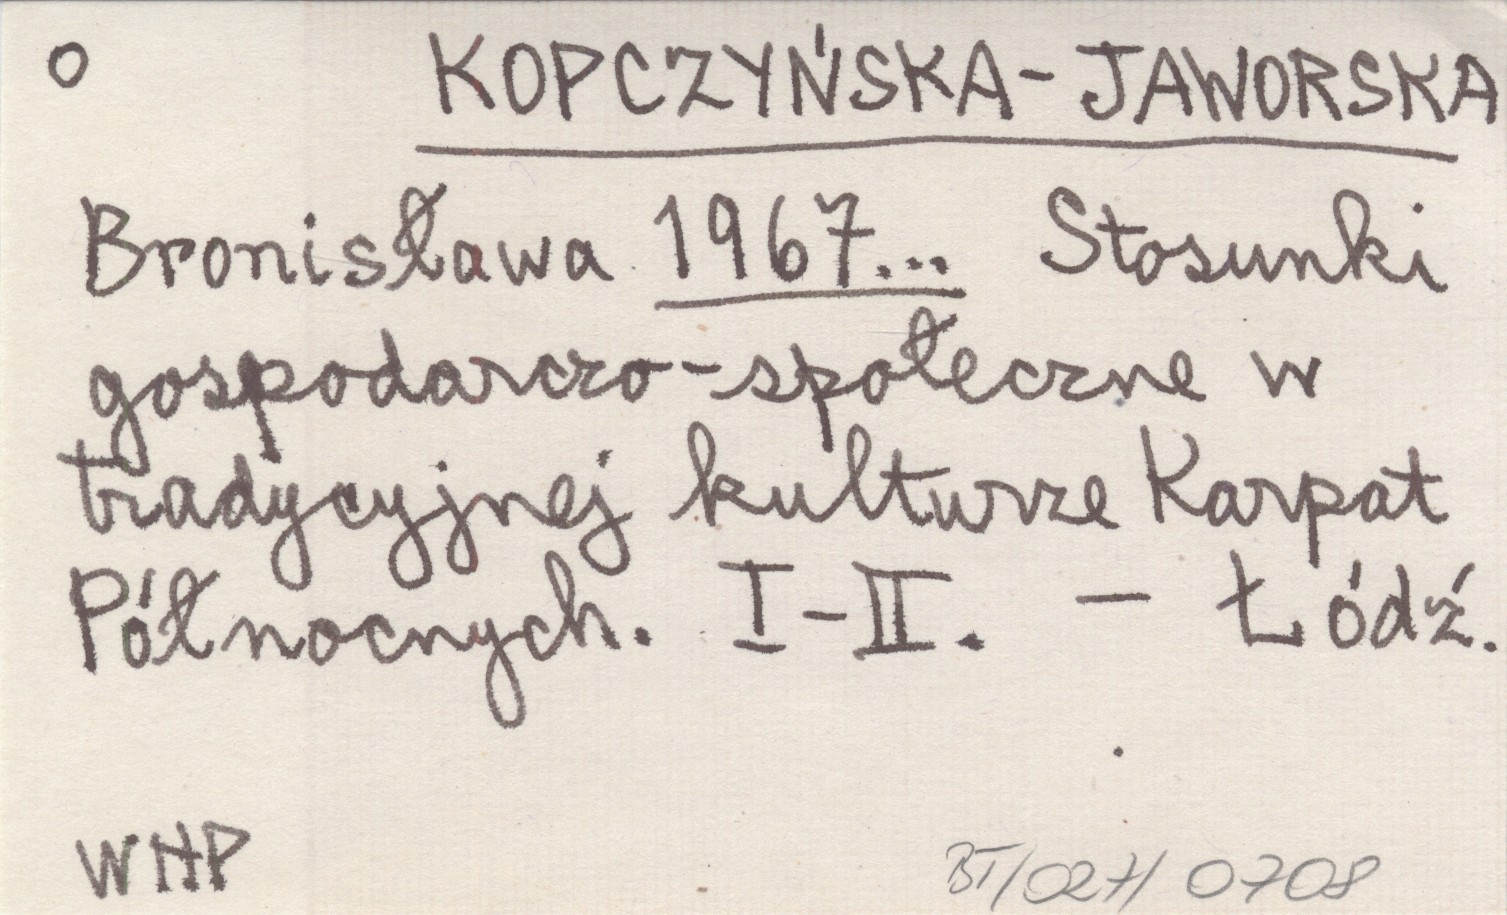 O KOPCZYŃSKA-JAWORSKA
Bronisława 1967... Stosunki
gospodarczo-społeczne w
tradycyjnej kulturze Karpat
Północnych. I-II. - Łódź.
WHP BT/027/0708